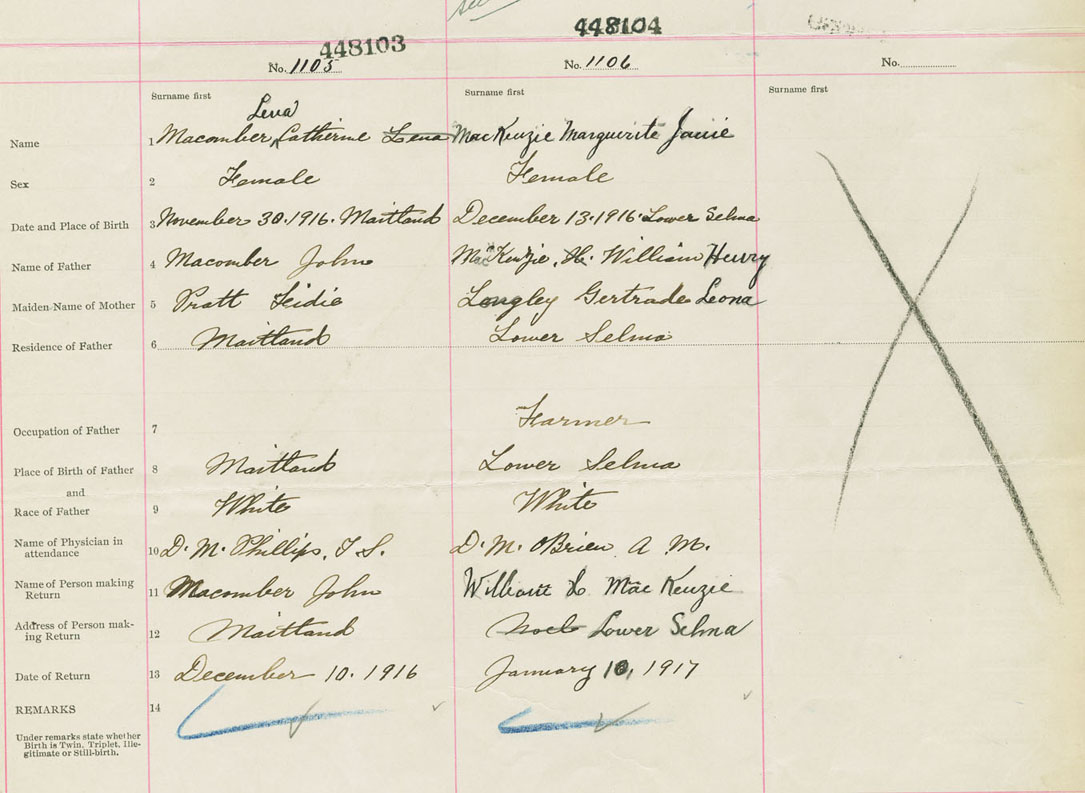 448103
448104
No. 1105
No. 1106
No.
Surname first
Surname first
Surname first
Lena
Name 1 Macomber, Catherine Lena MacKenzie Marguerite Janie
Sex 2 Female Female
Date and Place of Birth 3 November 30. 1916. Maitland December 13. 1916. Lower Selma
Name of Father 4 Macomber John MacKenzie, H. William Henry
Maiden Name of Mother 5 Pratt Longley Gertrude Leona
Residence of Father 6 Maitland Lower Selma
Occupation of Father 7 Farmer
Place of Birth of Father 8 Maitland Lower Selma
and
Race of Father 9 White White
Name of Physician in
attendance 10 D. M. Phillips, D. M. O'Brien A. M.
Name of Person making
Return 11 Macomber John William H MacKenzie
Address of Person mak-
ing Return 12 Maitland Noel Lower Selma
Date of Return 13 December 10. 1916 January 10, 1917
REMARKS 14
Under remarks state whether
Birth is Twin, Triplet, Ille-
gitimate or Still-birth.